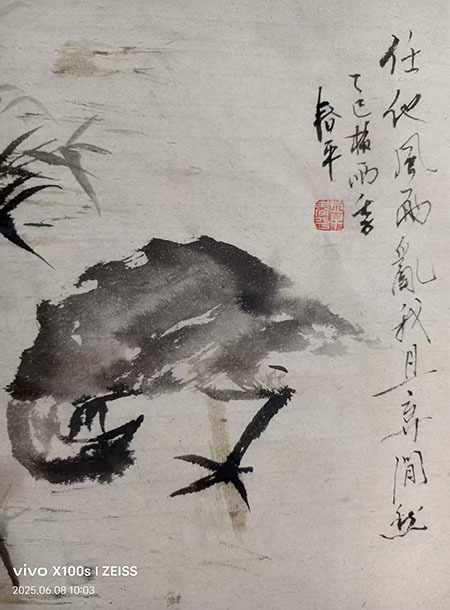 任他風雨亂我且弃閒愁
乙巳梅雨季
春平
vivo X100s | ZEISS
2025.06.08 10:03